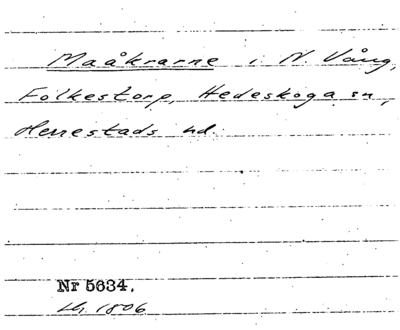 Maåkrarne i N Vång,
Folkestorp, Hedeskoga sn,
Herrestads hd.
Nr 5634.
LA. 1806